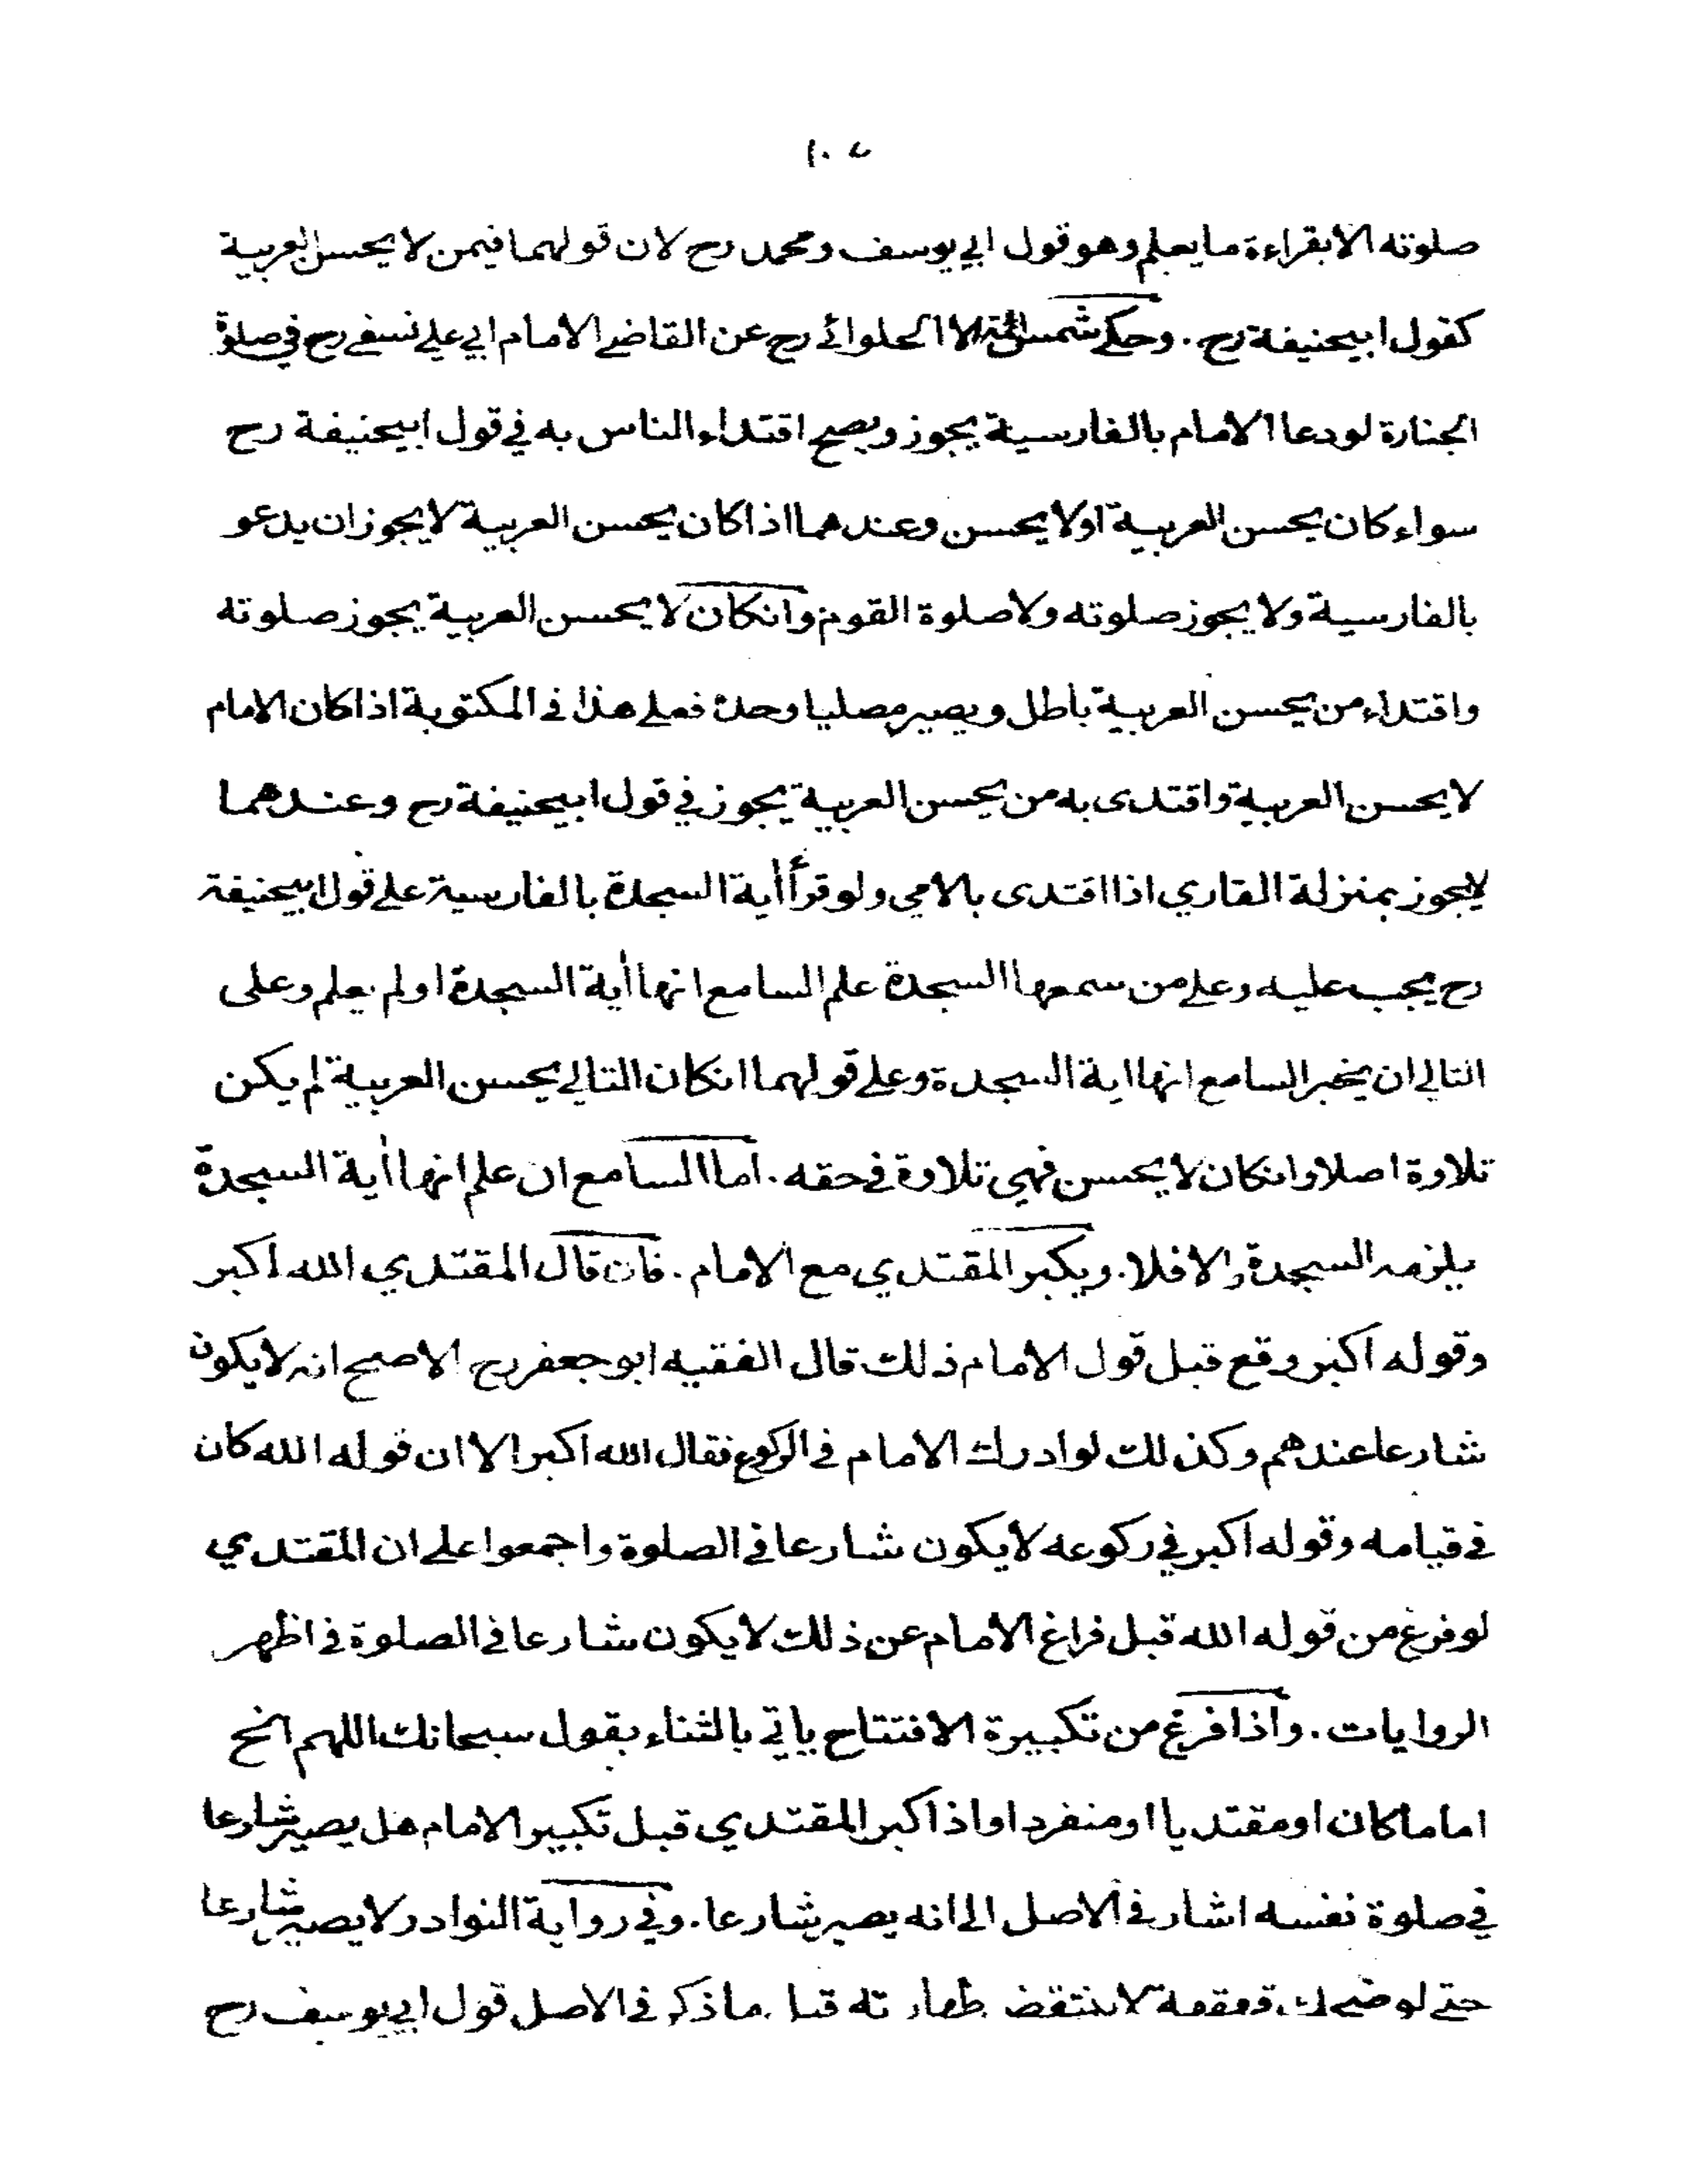 ١٠٧
صلوته الا بقراءة ما يعلم وهو قول ابي يوسف ومحمد رح لان قولهما فيمن لا يحسن العربية
كقول ابيحنيفة رح . وحكى شمس الائمة الحلوائي رح عن القاضي الامام ابي علي نسفي رح في صلوة
الجنازة لو دعا الامام بالفارسية يجوز ويصح اقتداء الناس به في قول ابيحنيفة رح
سواء كان يحسن العربية اولا يحسن وعندهما اذا كان يحسن العربية لا يجوز ان يدعو
بالفارسية ولا يجوز صلوته ولا صلوة القوم وانكان لا يحسن العربية يجوز صلوته
واقتداء من يحسن العربية باطل ويصير مصليا وحده فعلى هذا في المكتوبة اذا كان الامام
لا يحسن العربية واقتدى به من يحسن العربية يجوز في قول ابيحنيفة رح وعندهما
لا يجوز بمنزلة القاري اذا اقتدى بالامي ولو قرأ أية السجدة بالفارسية على قول ابيحنيفة
رح يجب عليه وعلى من سمعها السجدة علم السامع انها أية السجدة او لم يعلم وعلى
التالي ان يخبر السامع انها اية السجدة وعلى قولهما انكان التالي يحسن العربية لم يكن
تلاوة اصلا وانكان لا يحسن فهي تلاوة في حقه . اما السامع ان علم انها أية السجدة
يلزمه السجدة والا فلا . ويكبر المقتدي مع الامام . فان قال المقتدي الله اكبر
وقوله اكبر وقع قبل قول الامام ذلك قال الفقيه ابو جعفر رح الاصح انه لا يكون
شارعا عندهم وكذلك لو ادرك الامام في الركوع فقال الله اكبر الا ان قوله الله كان
في قيامه وقوله اكبر في ركوعه لا يكون شارعا في الصلوة واجمعوا على ان المقتدي
لو فرغ من قوله الله قبل فراغ الامام عن ذلك لا يكون شارعا في الصلوة في اظهر
الروايات . واذا فرغ من تكبيرة الافتتاح ياتي بالثناء يقول سبحانك اللهم الخ
اماما كان او مقتديا او منفردا واذا كبر المقتدي قبل تكبير الامام هل يصير شارعا
في صلوة نفسه اشار في الاصل الى انه يصير شارعا . وفي رواية النوادر لا يصير شارعا
حتى لو ضحك قهقهة لا ينتقض طهارته قيل ما ذكر في الاصل قول ابي يوسف رح